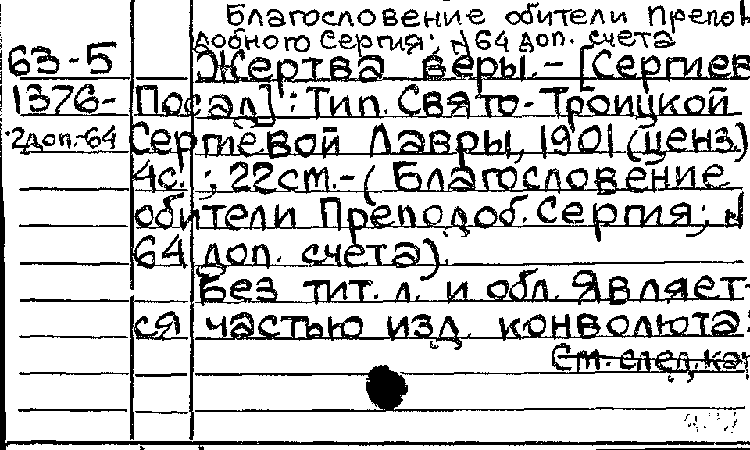 Благословение обители Препо
добного Сергия; N 64 доп. счета
63-5 Жертва веры. - [Сергиев
1376- Посад] : Тип. Свято-Троицкой
2доп.-64 Сергиевой Лавры, 1901 (ценз.)
4с. ; 22см. - ( Благословение
обители Преподоб. Сергия; N
64 доп. счета).
Без тит. л. и обл. Являет-
ся частью изд. конволюта:
См. след. кар